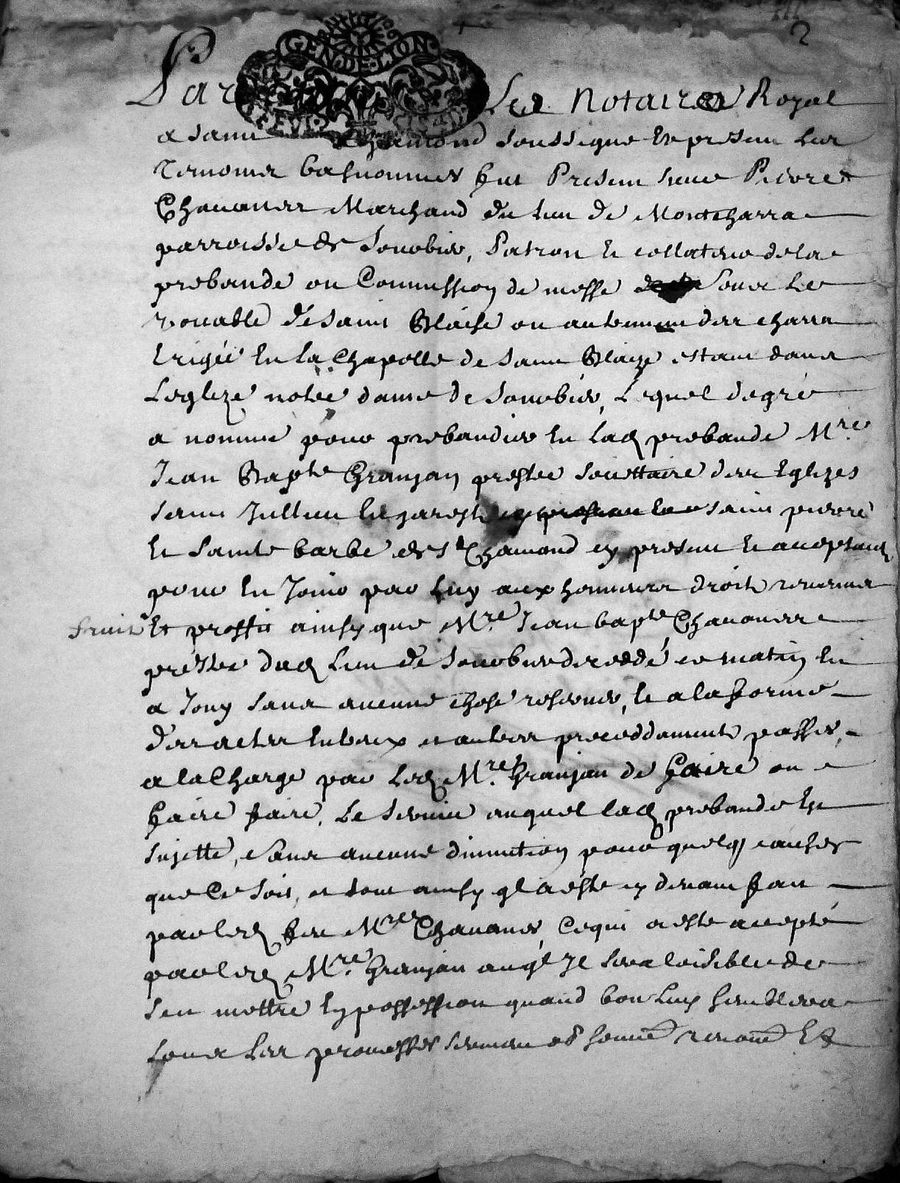 2
GEN.DE.LION
Par Les Notaires Royal
a saint Chamond soussigne En presence des
Temoins bas nommes fut Present sieur Pierre
Chavanes Marchand du lieu de Montcharra
parroisse de Sorobier, Patron et collateur de la
prebande ou Commission de messe soubs le
vocable de saint Blaise ou autrement des charra
Erigée En la Chapelle de saint Blaize estant dans
Leglize notre dame de Sorobier, Lequel de gré
a nommé pour prebandier En lad prebande Mre
Jean Bapte Granjan prestre societtaire des Eglizes
saint Jullien saint pierre
Et sainte barbe de St Chamond cy present et acceptant
pour En Jouir par luy aux honneurs droits revenus
fruits Et proffit ainsy que Mre Jean bapte Chavanes
prestre dud lieu de Sorobier deceddé ce matin En
a Jouy sans aucune chose reserver, et a la forme
des actes Entraux et autres preceddament passés,
a la Charge par led Mre Granjan de faire ou
faire faire, Le service auquel lad prebande Est
sujette, sans aucune diminution pour quelq causes
que Ce soit, et tout ainsy ql a esté cy devant fait
par led feu Mre Chavanes, Ce qui a esté accepté
par led Mre Granjan auql Il sera loisible de
sen mettre En possession quand bon luy semblera
soubs les promesses serment renon Et